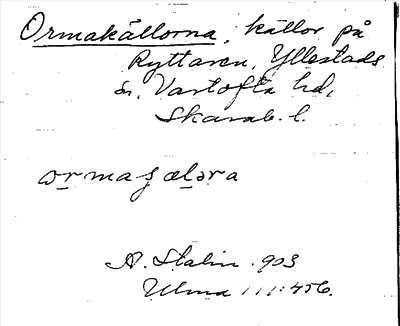 Ormakällorna, källor på
Ryttaren, Yllestads
sn, Vartofta hd,
Skarab. l.
ormaʒ ælǝra
A. Stalin 1903
Ulma 111:456.